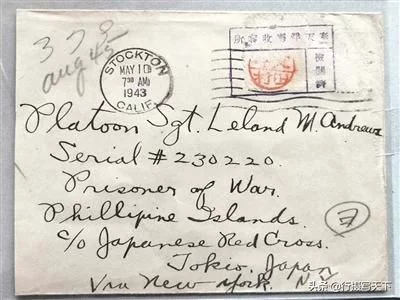 aug 45
STOCKTON
MAY 10
7 30 AM
1943
CALIF.
奉天俘虜收容所
檢閱濟
Platoon Sgt. Leland M. Andrews
Serial # 230220.
Prisoner of War.
Phillipine Islands.
c/o Japanese Red Cross.
Tokio, Japan
Via New York. N.Y.
头条 @行摄写天下